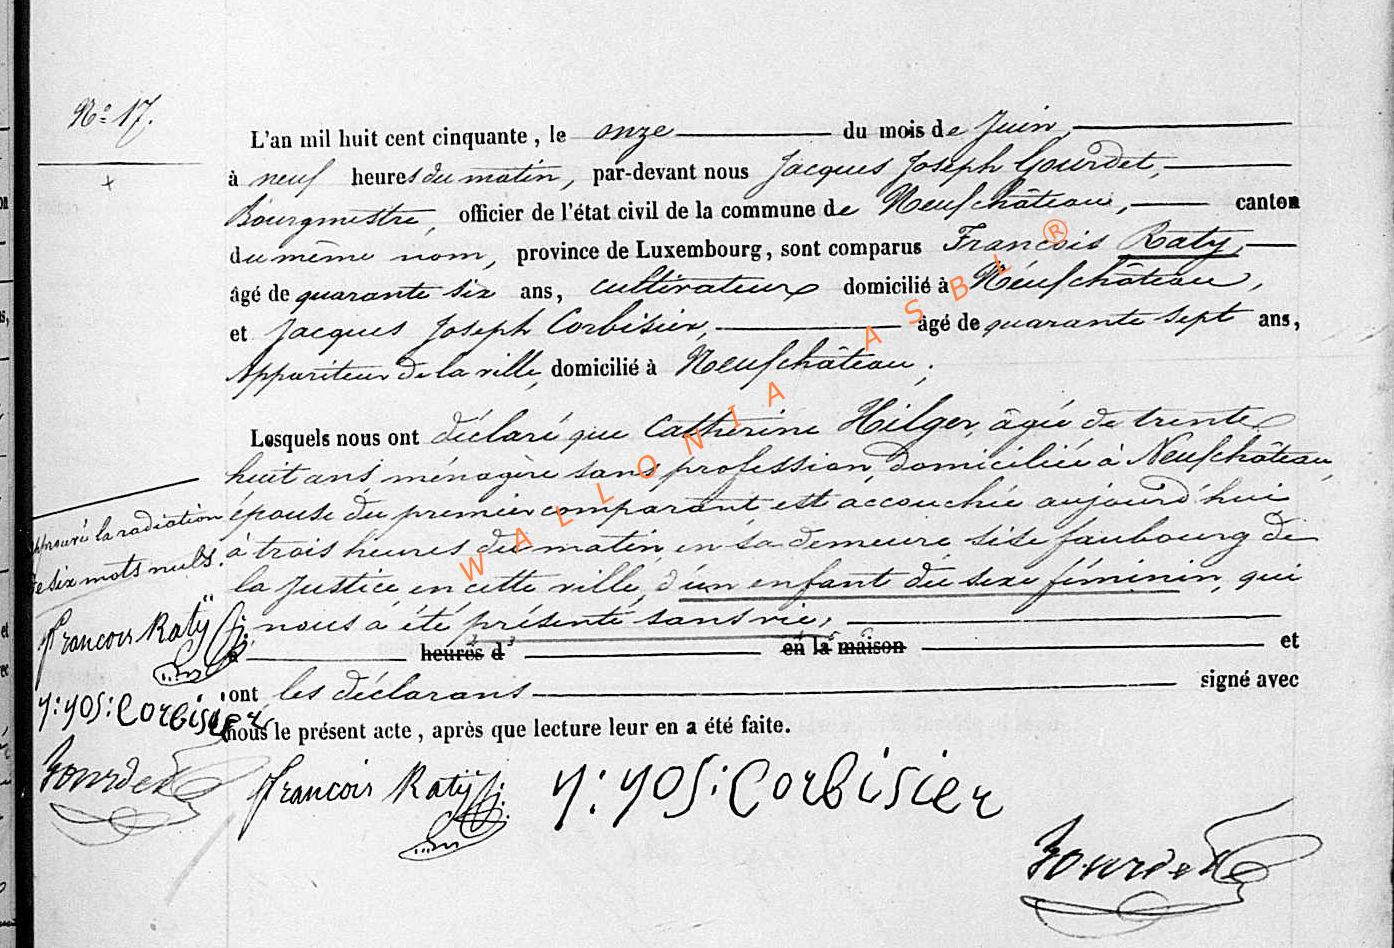 N° 17.
L'an mil huit cent cinquante, le onze du mois de Juin,
à neuf heures du matin, par-devant nous Jacques Joseph Gourdet,
Bourgmestre, officier de l'état civil de la commune de Neufchâteau, canton
du même nom, province de Luxembourg, sont comparus Francois Raty,
âgé de quarante six ans, cultivateur domicilié à Neufchâteau,
et Jacques Joseph Corbisier, âgé de quarante sept ans,
Appariteur de la ville, domicilié à Neufchâteau;
Lesquels nous ont déclaré que Catherine Hilger, âgée de trente
huit ans ménagère sans profession, domiciliée à Neufchâteau,
épouse du premier comparant est accouchée aujourd'hui
à trois heures du matin, en sa demeure sise faubourg de
la Justice en cette ville, d'un enfant du sexe féminin, qui
nous a été présenté sans vie,
à heures d' en la maison et
ont les déclarans signé avec
nous le présent acte, après que lecture leur en a été faite.
approuvé la radiation
de six mots nuls.
francois Raty
J: JOS: Corbisier
Gourdet
francois Raty J: JOS: Corbisier
Gourdet
WALLONIA ASBL ®